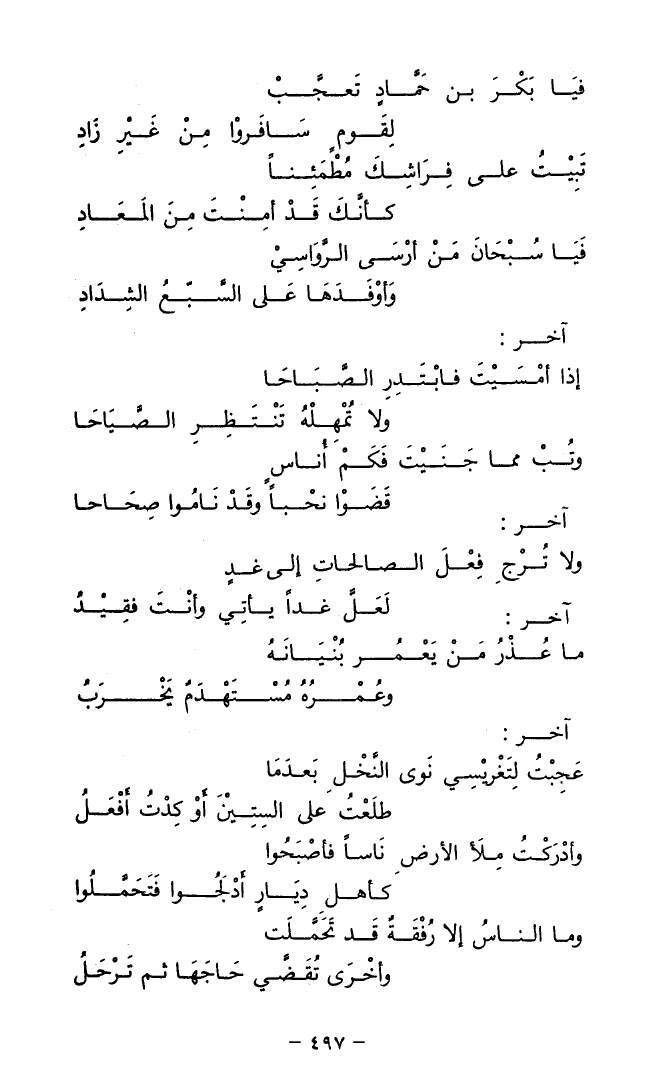 فَيَا بَكْرَ بن حَمَّادٍ تَعجَّبْ
لِقَومٍ سَافَروْا مِنْ غَيْرِ زَادِ
تَبِيْتُ على فِرَاشِكَ مُطْمَئِناً
كأنَّكَ قَدْ أمِنْتَ مِنَ المَعَادِ
فَيَا سُبْحَانَ مَنْ أرْسَى الرَّوَاسِيْ
وَأوْفَدَهَا عَلى السَّبْعِ الشِدَادِ
آخر :
إذا أمْسَيْتَ فابْتَدِرِ الصَّبَاحَا
ولا تُمْهِلْهُ تَنْتَظِرِ الصَّبَاحَا
وتُبْ مما جَنَيْتَ فَكَمْ أُناسٍ
قَضَوْا نَحْباً وقَدْ نَامُوا صِحَاحا
آخر :
ولا تُرْجِ فِعْلَ الصالحاتِ إلى غدٍ
لَعَلَّ غداً يأتي وأنْتَ فَقِيْدُ
آخر :
ما عُذْرُ مَنْ يَعْمُر بُنْيَانَهُ
وعُمْرُهُ مُسْتَهْدَمٌ يَخْرَبُ
آخر :
عَجِبْتُ لِتَغْرِيْسِي نَوى النَّخْلِ بَعدَمَا
طلَعْتُ على الستِيْنَ أوْ كِدْتُ أفْعَلُ
وأدْرَكْتُ مِلأَ الأرْضِ نَاساً فأصْبَحُوا
كأهلِ دِيَارٍ أدْلَجُوا فَتَحَمَّلُوا
وما الناسُ إلا رُفْقَةٌ قد تَحَمَّلَت
وأخْرَى تُقَضِّي حَاجَهَا ثم تَرْحَلُ
– ٤٩٧ –